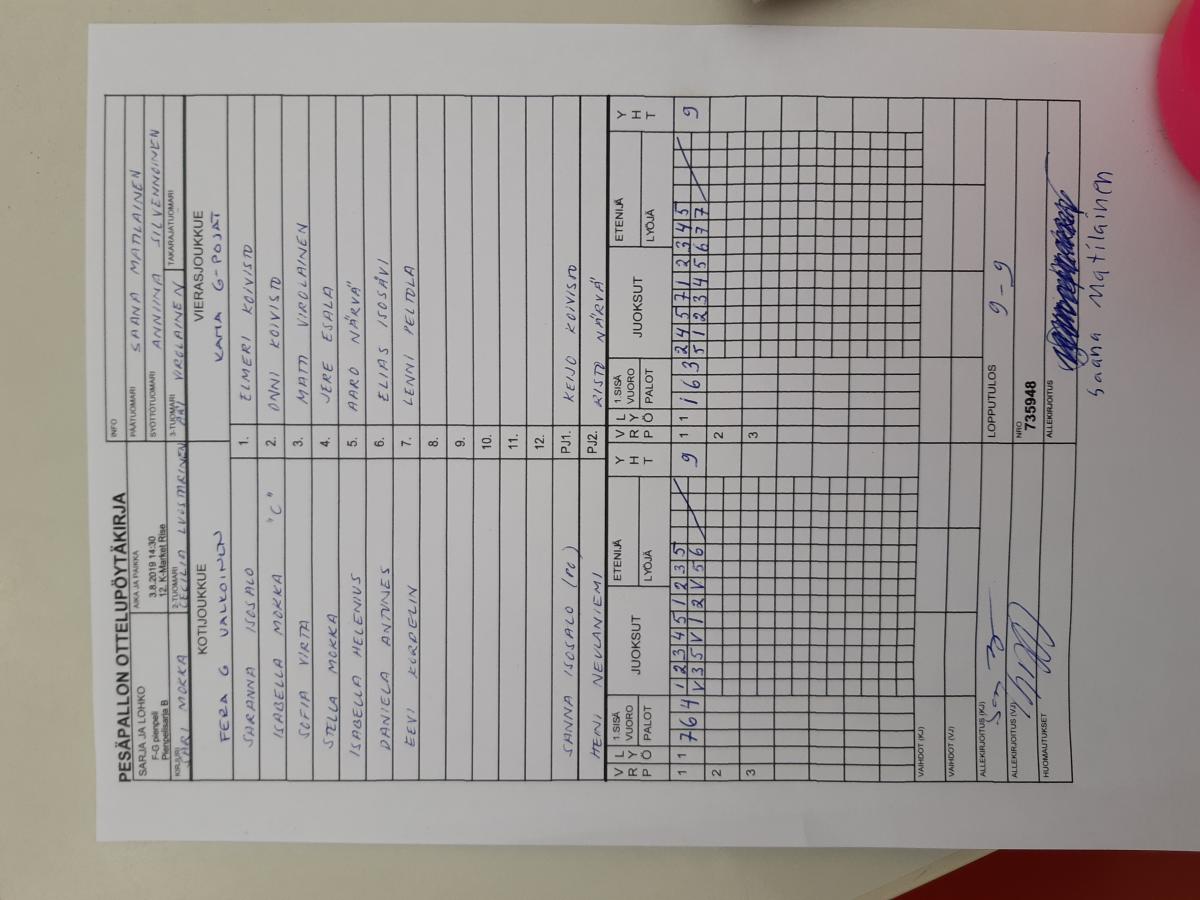 PESÄPALLON OTTELUPÖYTÄKIRJA
SARJA JA LOHKO
F-G pienpeli
Pienpelisarja B
AIKA JA PAIKKA
3.8.2019 14:30
12. K-Market Rise
INFO
PÄÄTUOMARI SAANA MATILAINEN
SYÖTTÖTUOMARI ANNIINA SILVENNOINEN
KIRJURI SARI MOKKA
2-TUOMARI CECILIA
3-TUOMARI VIROLAINEN
TAKARAJATUOMARI
KOTIJOUKKUE VIERASJOUKKUE
FERA G VALKOINEN KAMA G-POJAT
SARANNA ISOSALO 1. ELMERI KOIVISTO
ISABELLA MOKKA "C" 2. ONNI KOIVISTO
SOFIA VIRTA 3. MATTI VIROLAINEN
STELLA MOKKA 4. JERE ESALA
ISABELLA HELENIUS 5. AARO NÄRVÄ
DANIELA ANTUNES 6. ELIAS ISOSÄVI
EEVI KORPELIN 7. LENNI PELTOLA
8.
9.
10.
11.
12.
SANNA ISOSALO (PC) PJ1. KEIJO KOIVISTO
HENI NEVLANIEMI PJ2. RISTO NÄRVÄ
VRP LYÖ 1.SISÄVUORO PALOT JUOKSUT ETENIJÄ LYÖJÄ YHT VRP LYÖ 1.SISÄVUORO PALOT JUOKSUT ETENIJÄ LYÖJÄ YHT
1 1 7 6 4 1 2 3 4 5 1 2 3 5 9 1 1 1 6 3 2 4 5 7 1 2 3 4 5 9
V 3 5 V 1 2 V 5 6 5 1 2 3 4 5 6 7 7
2 2
3 3
VAIHDOT (KJ)
VAIHDOT (VJ)
ALLEKIRJOITUS (KJ) LOPPUTULOS 9-9
ALLEKIRJOITUS (VJ) NRO
735948
HUOMAUTUKSET ALLEKIRJOITUS
Saana Matilainen